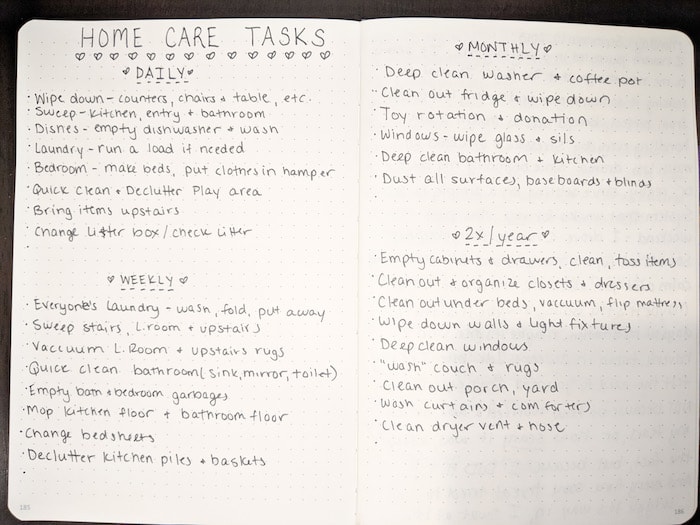 HOME CARE TASKS
DAILY
· Wipe down - counters, chairs + table, etc.
· Sweep - kitchen, entry + bathroom
· Dishes - empty dishwasher + wash
· Laundry - run a load if needed
· Bedroom - make beds, put clothes in hamper
· Quick clean + Declutter Play area
· Bring items upstairs
· Change litter box / check litter
·
WEEKLY
· Everyone's laundry - wash, fold, put away
· Sweep stairs, L.room + upstairs
· Vaccuum L.Room + upstairs rugs
· Quick clean bathroom (sink, mirror, toilet)
· Empty bath + bedroom garbages
· Mop kitchen floor + bathroom floor
· Change bedsheets
· Declutter kitchen piles + baskets
·
185
MONTHLY
· Deep clean washer + coffee pot
· Clean out fridge + wipe down
· Toy rotation + donation
· Windows - wipe glass + sils
· Deep clean bathroom + kitchen
· Dust all surfaces, baseboards + blinds
·
2x/year
· Empty cabinets + drawers, clean, toss items
· Clean out + organize closets + dressers
· Clean out under beds, vaccuum, flip mattress
· Wipe down walls + light fixtures
· Deep clean windows
· "wash" couch + rugs
· Clean out porch, yard
· Wash curtains + comforters
· Clean dryer vent + hose
·
186